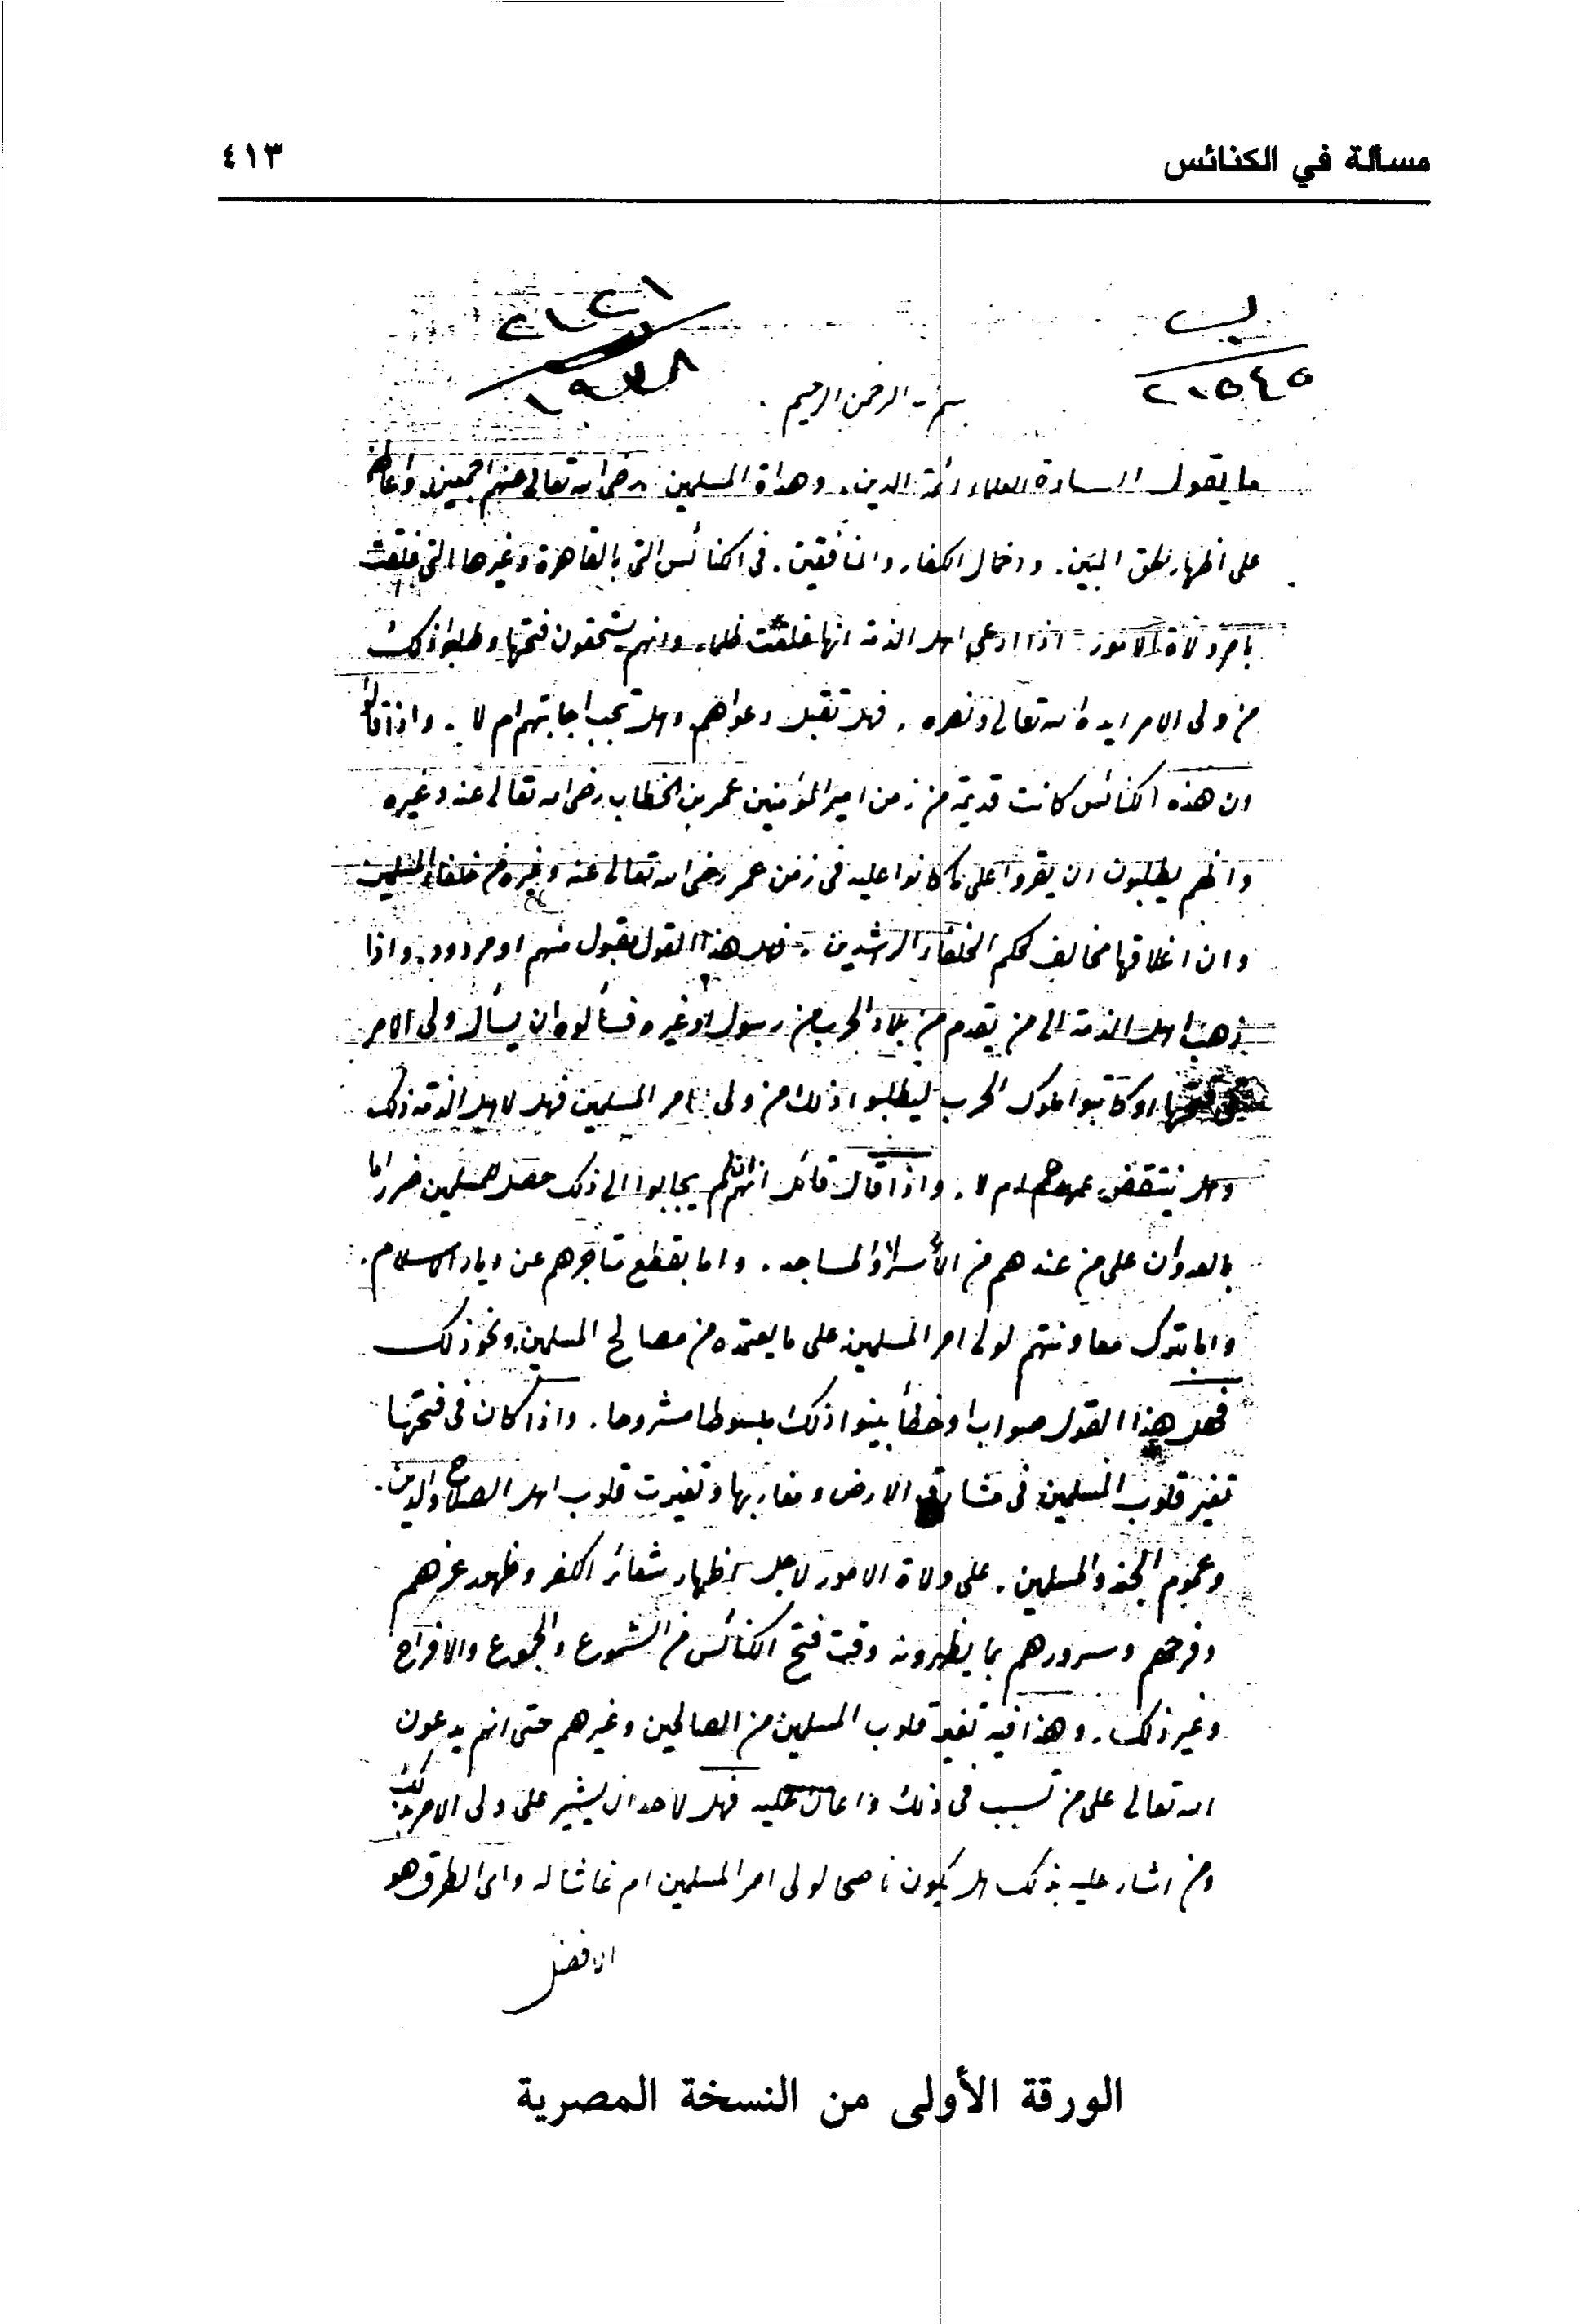 مسألة في الكنائس
٤١٣
ب
٢٠٥٤٥
١٩٣٨
بسم الله الرحمن الرحيم
ما يقول السادة العلماء أئمة الدين. وهداة المسلمين رضى الله تعالى عنهم اجمعين. وأعانهم
على اظهار الحق المبين. واخمال الكفار والمنافقين. فى الكنائس التى بالقاهرة وغيرها التى غلقت
بامر ولاة الامور. اذا ادعى اهل الذمة انها غلقت ظلما. وانهم يستحقون فتحها وطلبوا ذلك
من ولى الامر ايده الله تعالى ونصره. فهل تقبل دعواهم وهل تجب اجابتهم ام لا. واذا قالوا
ان هذه الكنائس كانت قديمة من زمن امير المؤمنين عمر بن الخطاب رضى الله تعالى عنه وغيره
وانهم يطلبون ان يقروا على ما كانوا عليه فى زمن عمر رضى الله تعالى عنه وغيره من خلفاء المسلمين
وان اغلاقها مخالف لحكم الخلفاء الراشدين. فهل هذا القول مقبول منهم او مردود. واذا
ذهب اهل الذمة الى من يقدم من بلاد الحرب من رسول او غيره فسألوه ان يسأل ولى الامر
فى فتحها او كاتبوا ملوك الحرب ليطلبوا ذلك من ولى امر المسلمين فهل لاهل الذمة ذلك
وهل ينتقض عهدهم ام لا. واذا قال قائل انهم ان لم يجابوا الى ذلك حصل للمسلمين ضرر اما
بالعدوان على من عندهم من الأسراء والمساجد. واما بقطع متاجرهم عن ديار الاسلام.
واما بترك معاونتهم لولى امر المسلمين على ما يعتمده من مصالح المسلمين ونحو ذلك
فهل هذا القول صواب او خطأ بينوا ذلك مبسوطا مشروحا. واذا كان فى فتحها
تغير قلوب المسلمين فى مشارق الارض ومغاربها وتغيرت قلوب اهل الصلاح والدين.
وعموم الجند والمسلمين. على ولاة الامور لاجل اظهار شعائر الكفر وظهور عزهم
وفرحهم وسرورهم بما يظهرونه وقت فتح الكنائس من الشموع والجموع والافراح
وغير ذلك. وهذا فيه تغير قلوب المسلمين من الصالحين وغيرهم حتى انهم يدعون
الله تعالى على من تسبب فى ذلك وأعان عليه فهل لاحد ان يشير على ولى الامر بذلك
ومن اشار عليه بذلك هل يكون ناصحا لولى امر المسلمين ام غاشا له واى الطرق هو
الافضل
الورقة الأولى من النسخة المصرية